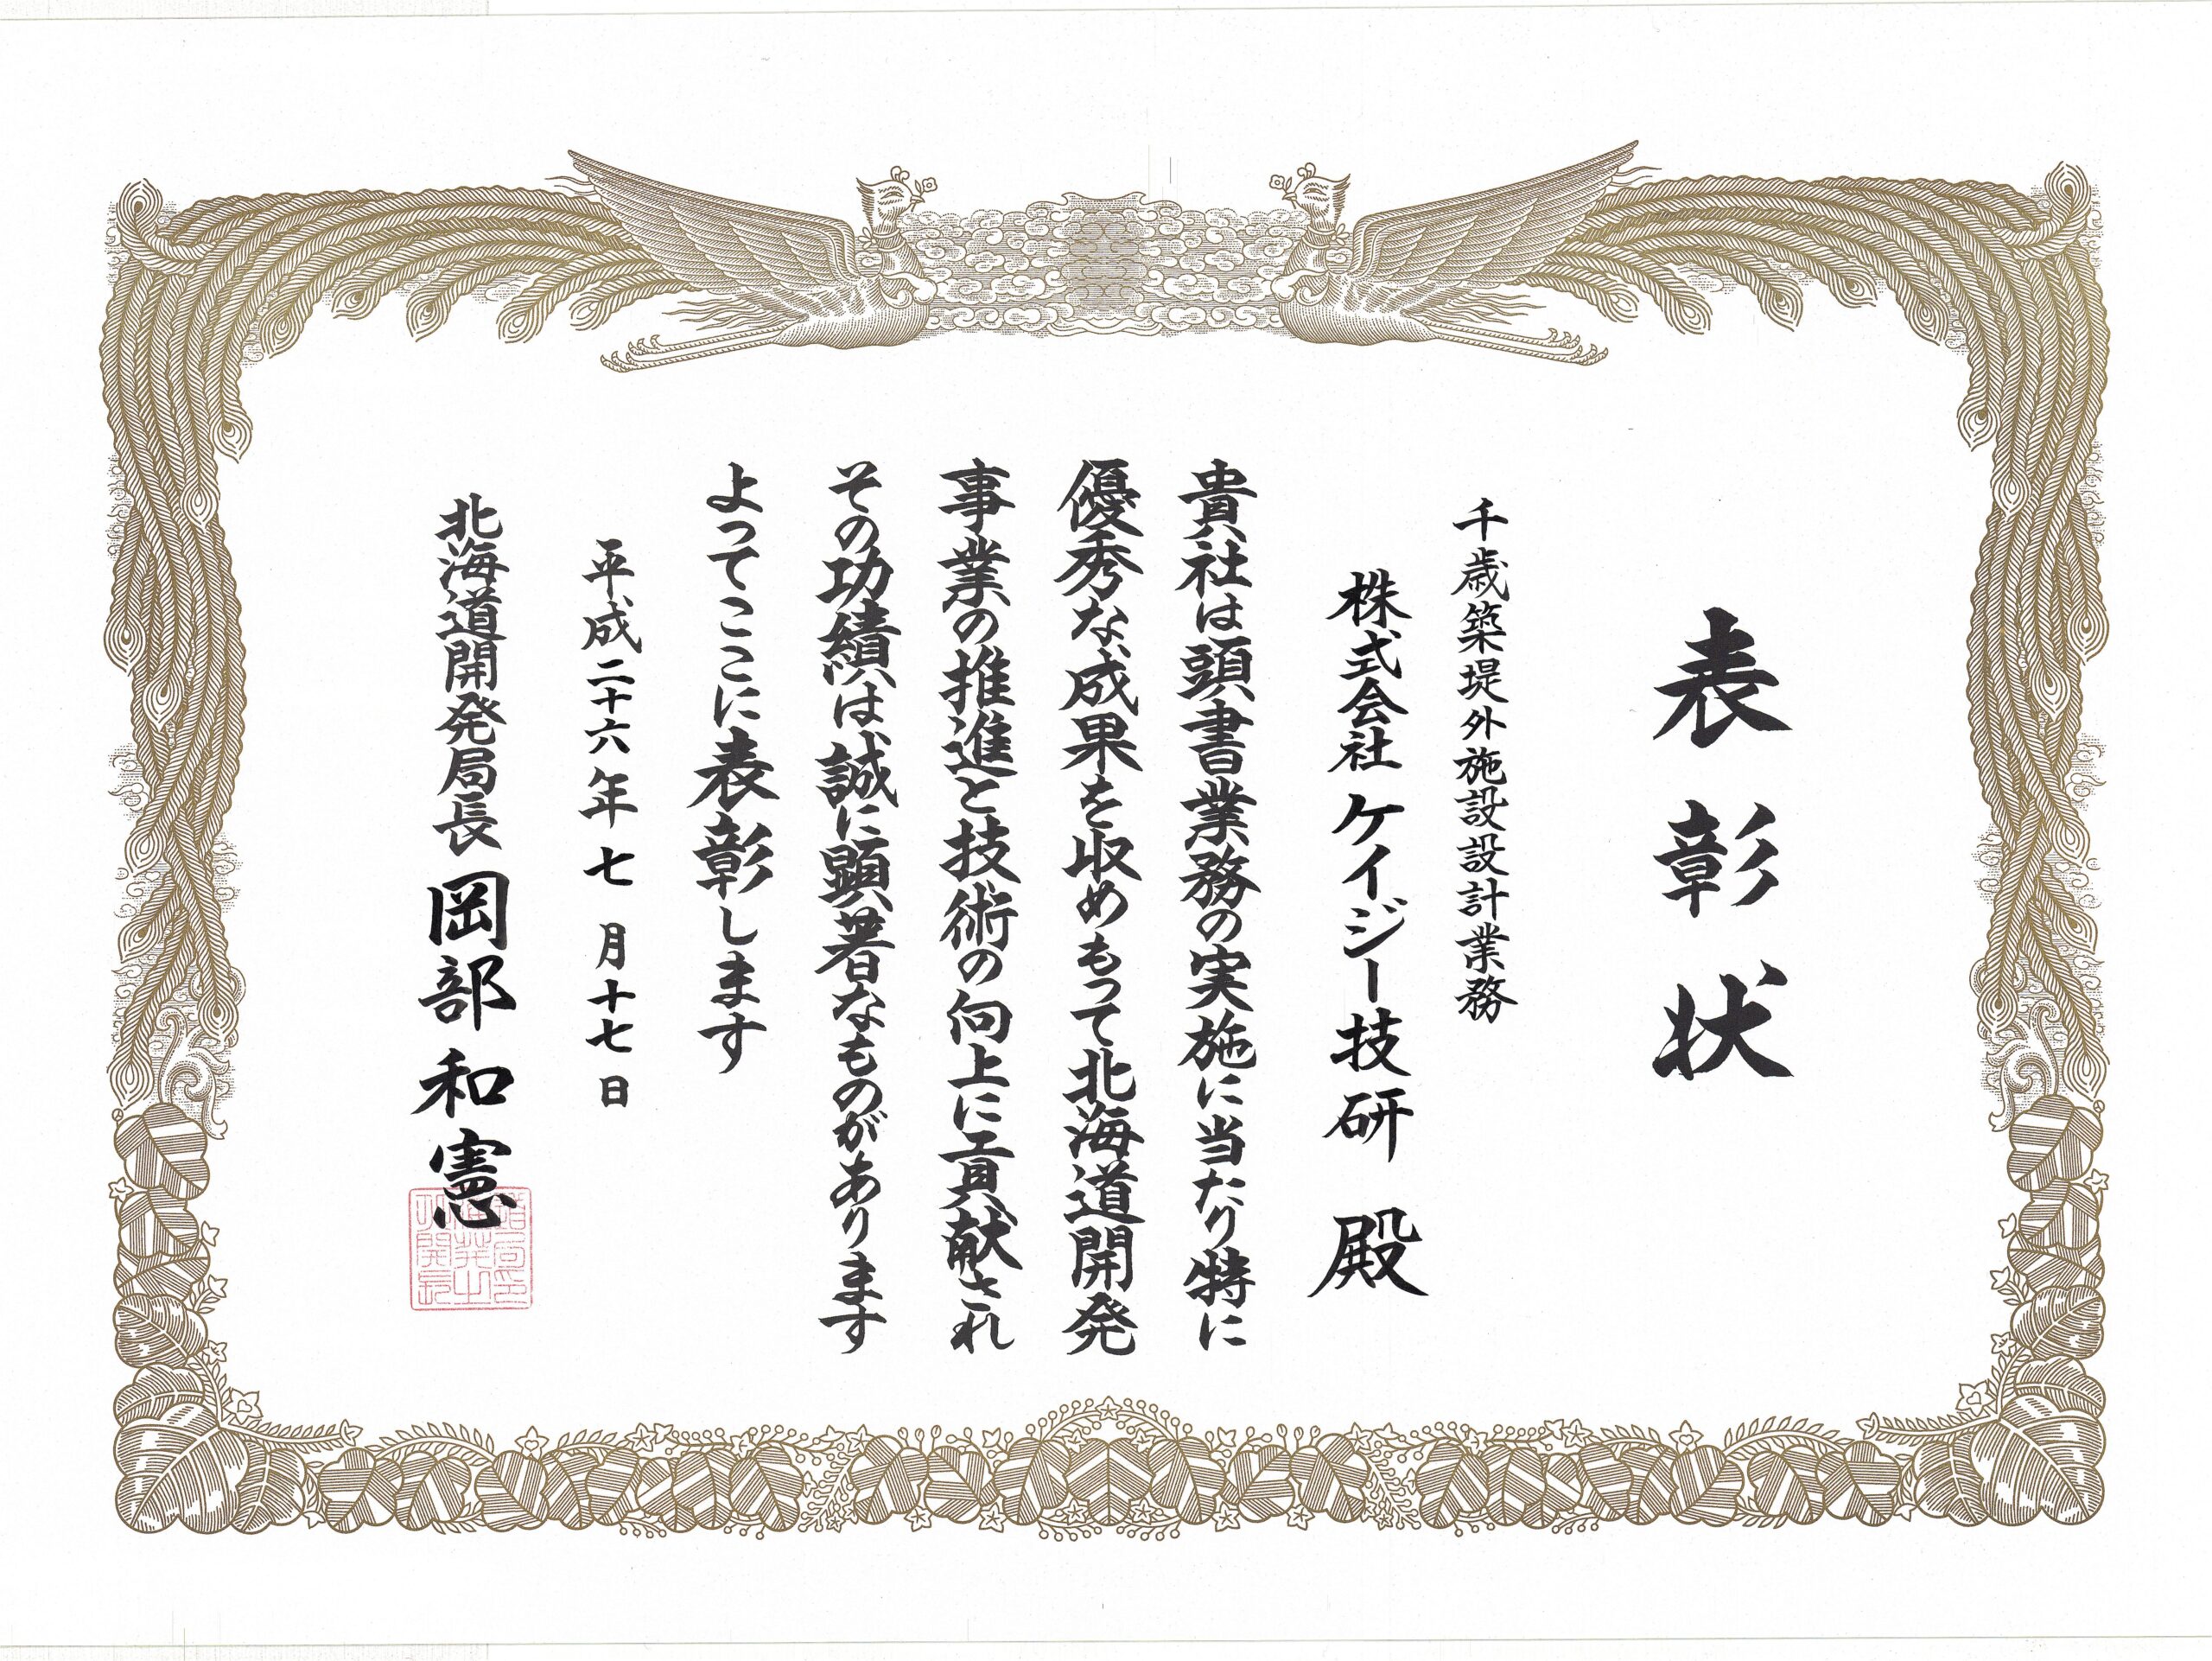 表彰状
千歳築堤外施設設計業務
株式会社ケイジー技研 殿
貴社は頭書業務の実施に当たり特に
優秀な成果を収めもって北海道開発
事業の推進と技術の向上に貢献され
その功績は誠に顕著なものがあります
よってここに表彰します
平成二十六年七月十七日
北海道開発局長 岡部和憲